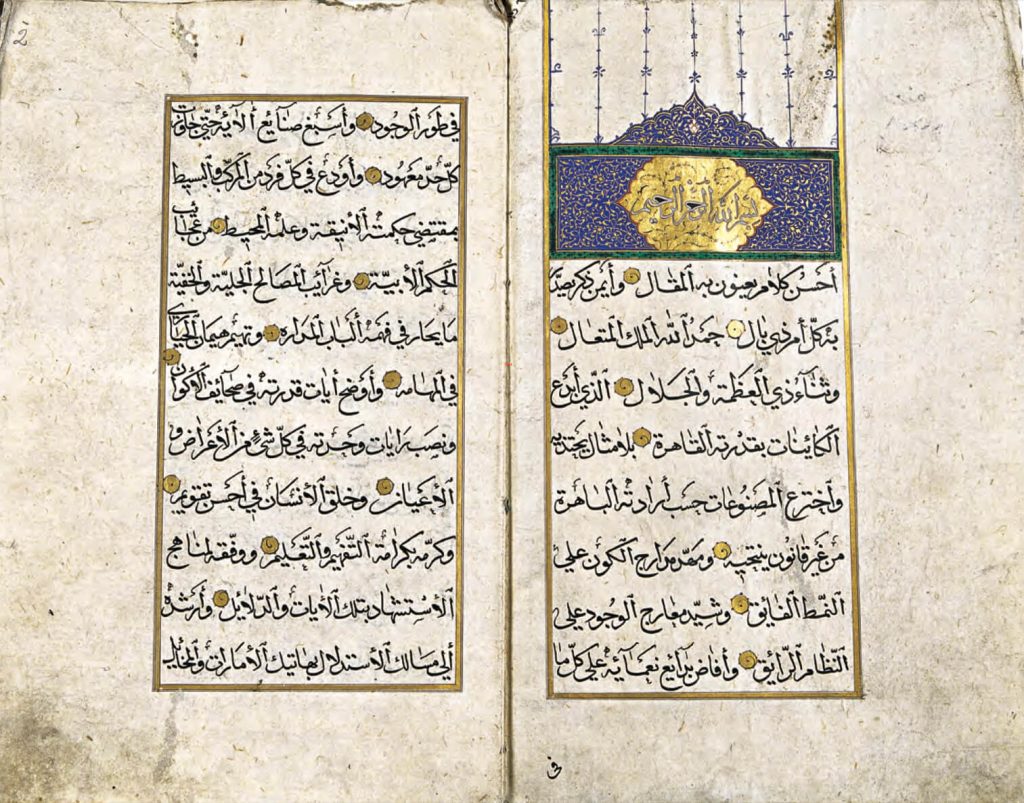 بسم الله الرحمن الرحيم
أحسن كلام يعنون به المقال وأيمن ذكر يصدر
به كل أمر ذي بال حمد الله الملك المتعال
وثناء ذي العظمة والجلال الذي أبدع
الكاينات بقدرته القاهرة بلا مثال يحتذيه
واخترع المصنوعات حسب أرادته الباهرة
من غير قانون ينتحيه ومهد مدارج الكون على
النمط الفايق وشيد معارج الوجود على
النظام الرايق وأفاض بدايع نعمايه على كل ما
في
2
في طور الوجود وأسبغ صنايع الايه حتى جاوزت
كل حد معهود وأودع في كل فرد من المركب والبسيط
بمقتضى حكمته الأنيقة وعلمه المحيط من عجائب
الحكم الأبية وغرايب المصالح الجلية والخفية
ما يحار في فهمه ألباب المداره وتهيم هيمان الحيارى
في المهامه وأوضح أيات قدرته في صحايف الأكوان
ونصب رايات وحدته في كل شيء من الأعراض و
الأعيان وخلق الأنسان في أحسن تقويم
وكرمه بكرامة التفهيم والتعليم ووفقه لمناهج
الأستشهاد بتلك الأيات والدلايل وأرشده
ألى مسالك الأستدلال بهاتيك الأمارات والمخايل